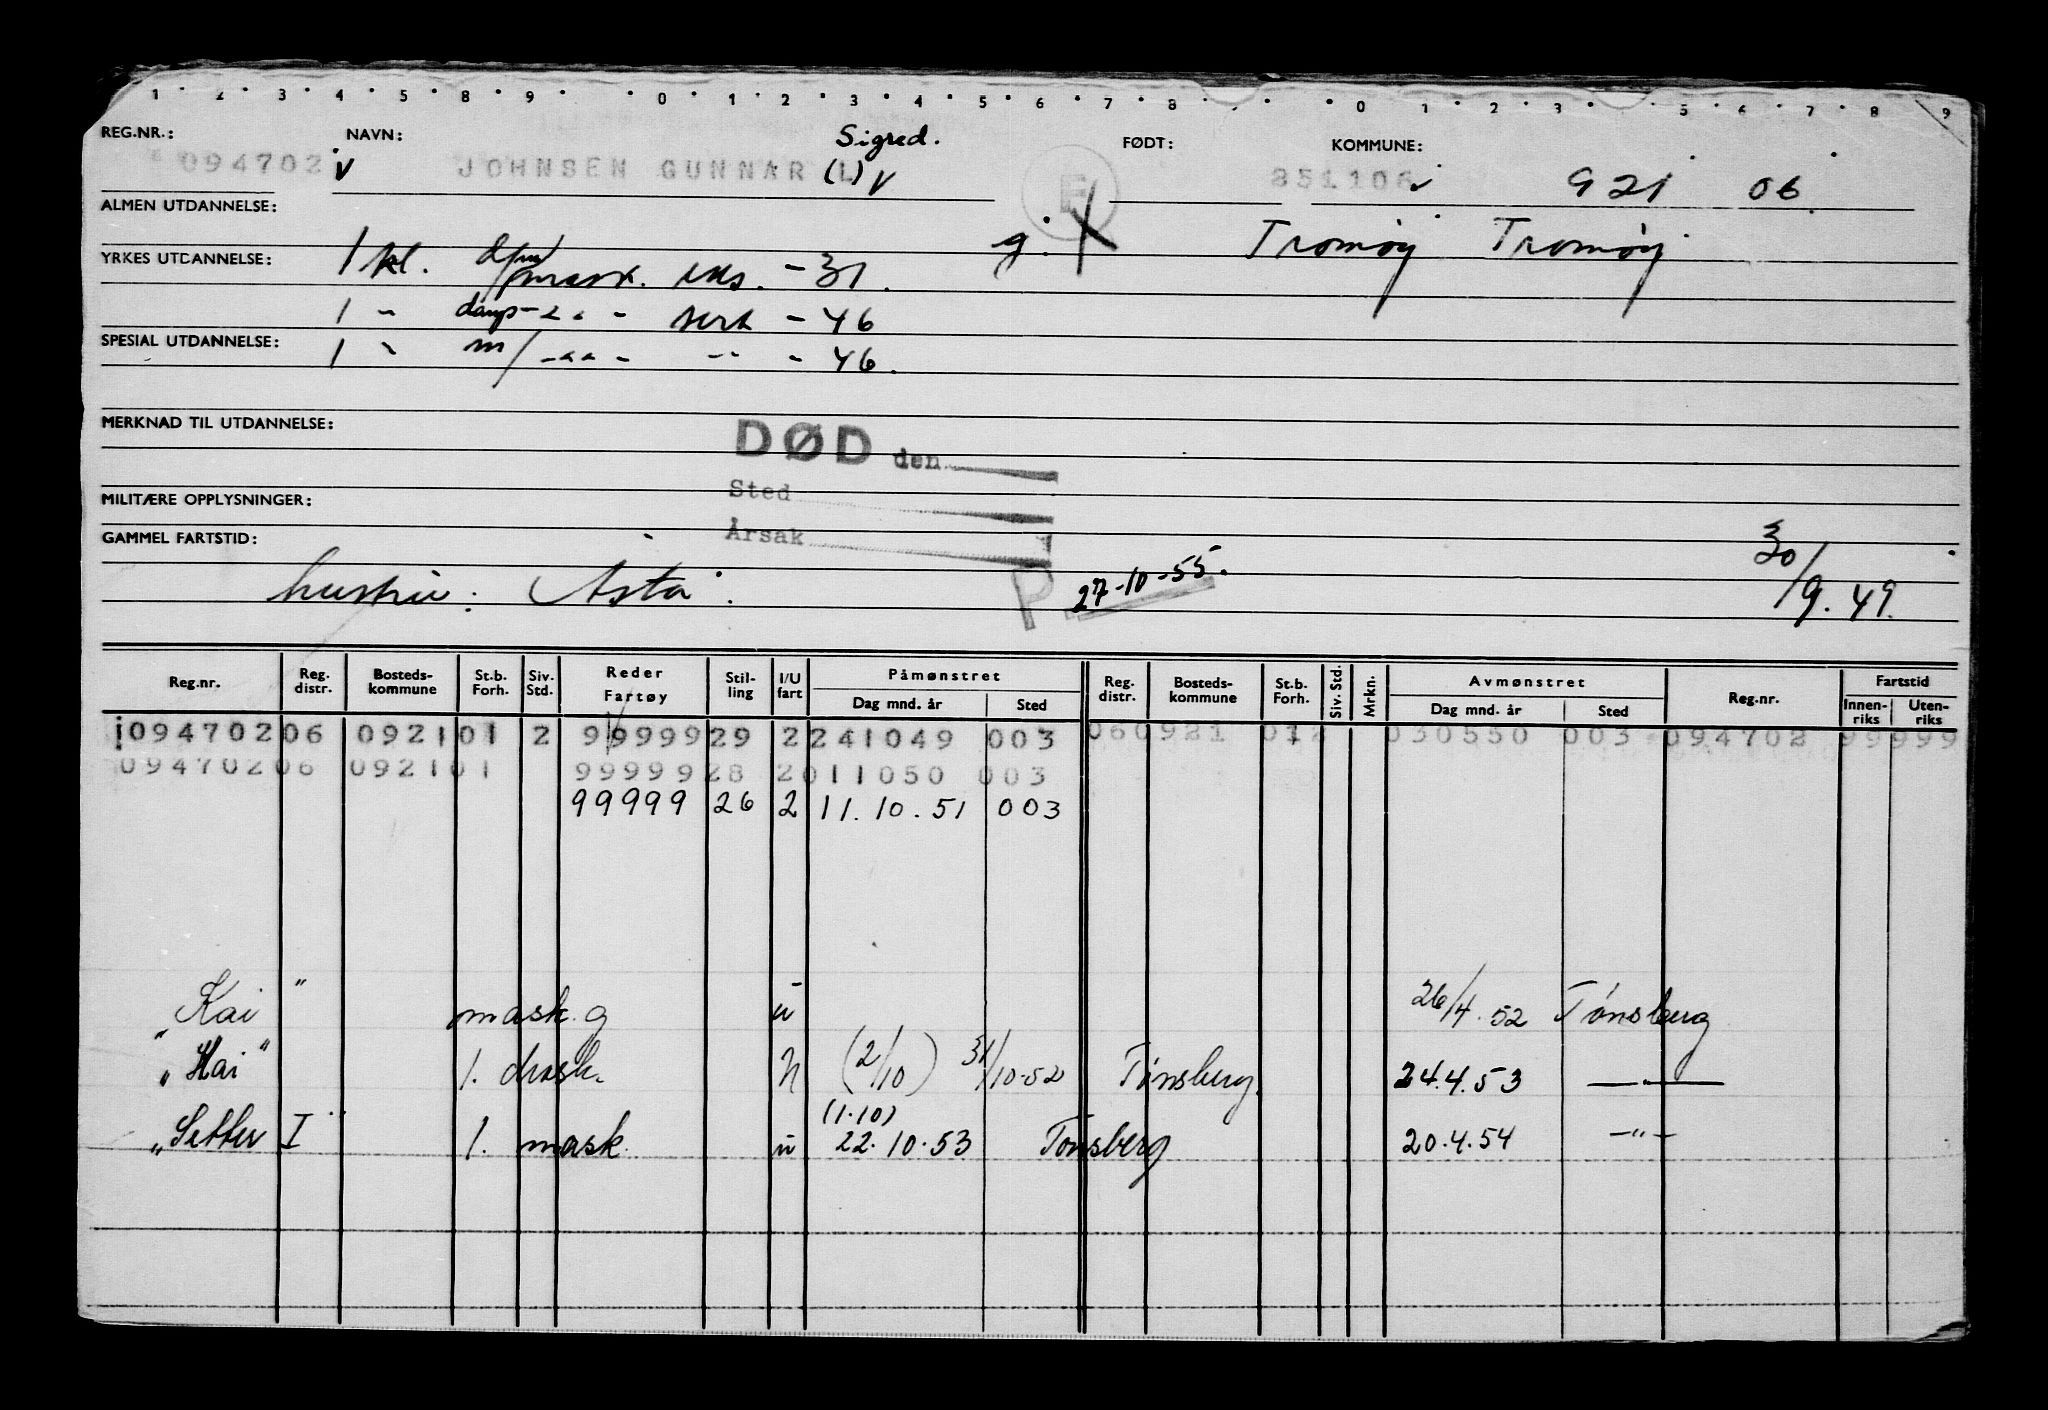 1 2 3 4 5 8 9 0 1 2 3 4 5 6 7 8 0 1 2 3 5 6 7 8 9
REG.NR.: NAVN: Sigred. FØDT: KOMMUNE:
094702 v JOHNSEN GUNNAR (L) v E 851106 921 06
ALMEN UTDANNELSE: g. X Tromøy Tromøy
YRKES UTDANNELSE: 1 kl. mask. eks. - 31.
1 " damp - " - sert - 46
SPESIAL UTDANNELSE: 1 " m/ - " - - " - 46.
MERKNAD TIL UTDANNELSE:
DØD den
MILITÆRE OPPLYSNINGER: Sted
GAMMEL FARTSTID: Årsak
hustru: Asta. P. 27-10-55. 30/9.49.
Reg.nr. Reg. distr. Bosteds-kommune St.b. Forh. Siv. Std. Reder Fartøy Stil-ling I/U fart Påmønstret Dag mnd. år Sted Reg. distr. Bosteds-kommune St.b. Forh. Siv. Std. Mrkn. Avmønstret Dag mnd. år Sted Reg.nr. Fartstid Innen-riks Uten-riks
094702 06 0921 01 2 99999 29 2 241049 003 06 0921 01 2 030550 003 094702 99 999
094702 06 0921 01 99999 28 2 011050 003
99999 26 2 11.10.51 003
"Kai" mask. g u 26/4.52 Tønsberg
"Kai" 1. mask. u (2/10) 31/10-52 Tønsberg. 24.4.53 —
(1.10)
"Setter I" 1. mask. u 22.10.53 Tønsberg 20.4.54 -"-